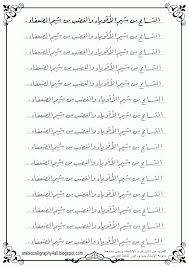 التسامح من شيم الأقوياء والغضب من شيم الضعفاء .
التسامح من شيم الأقوياء والغضب من شيم الضعفاء .
التسامح من شيم الأقوياء والغضب من شيم الضعفاء .
التسامح من شيم الأقوياء والغضب من شيم الضعفاء .
التسامح من شيم الأقوياء والغضب من شيم الضعفاء .
التسامح من شيم الأقوياء والغضب من شيم الضعفاء .
التسامح من شيم الأقوياء والغضب من شيم الضعفاء .
التسامح من شيم الأقوياء والغضب من شيم الضعفاء .
التسامح من شيم الأقوياء والغضب من شيم الضعفاء .
التسامح من شيم الأقوياء والغضب من شيم الضعفاء .
التسامح من شيم الأقوياء والغضب من شيم الضعفاء .
التسامح من شيم الأقوياء والغضب من شيم الضعفاء .
التسامح من شيم الأقوياء والغضب من شيم الضعفاء .
التسامح من شيم الأقوياء والغضب من شيم الضعفاء .
arabiccalligraphy4all.blogspot.com